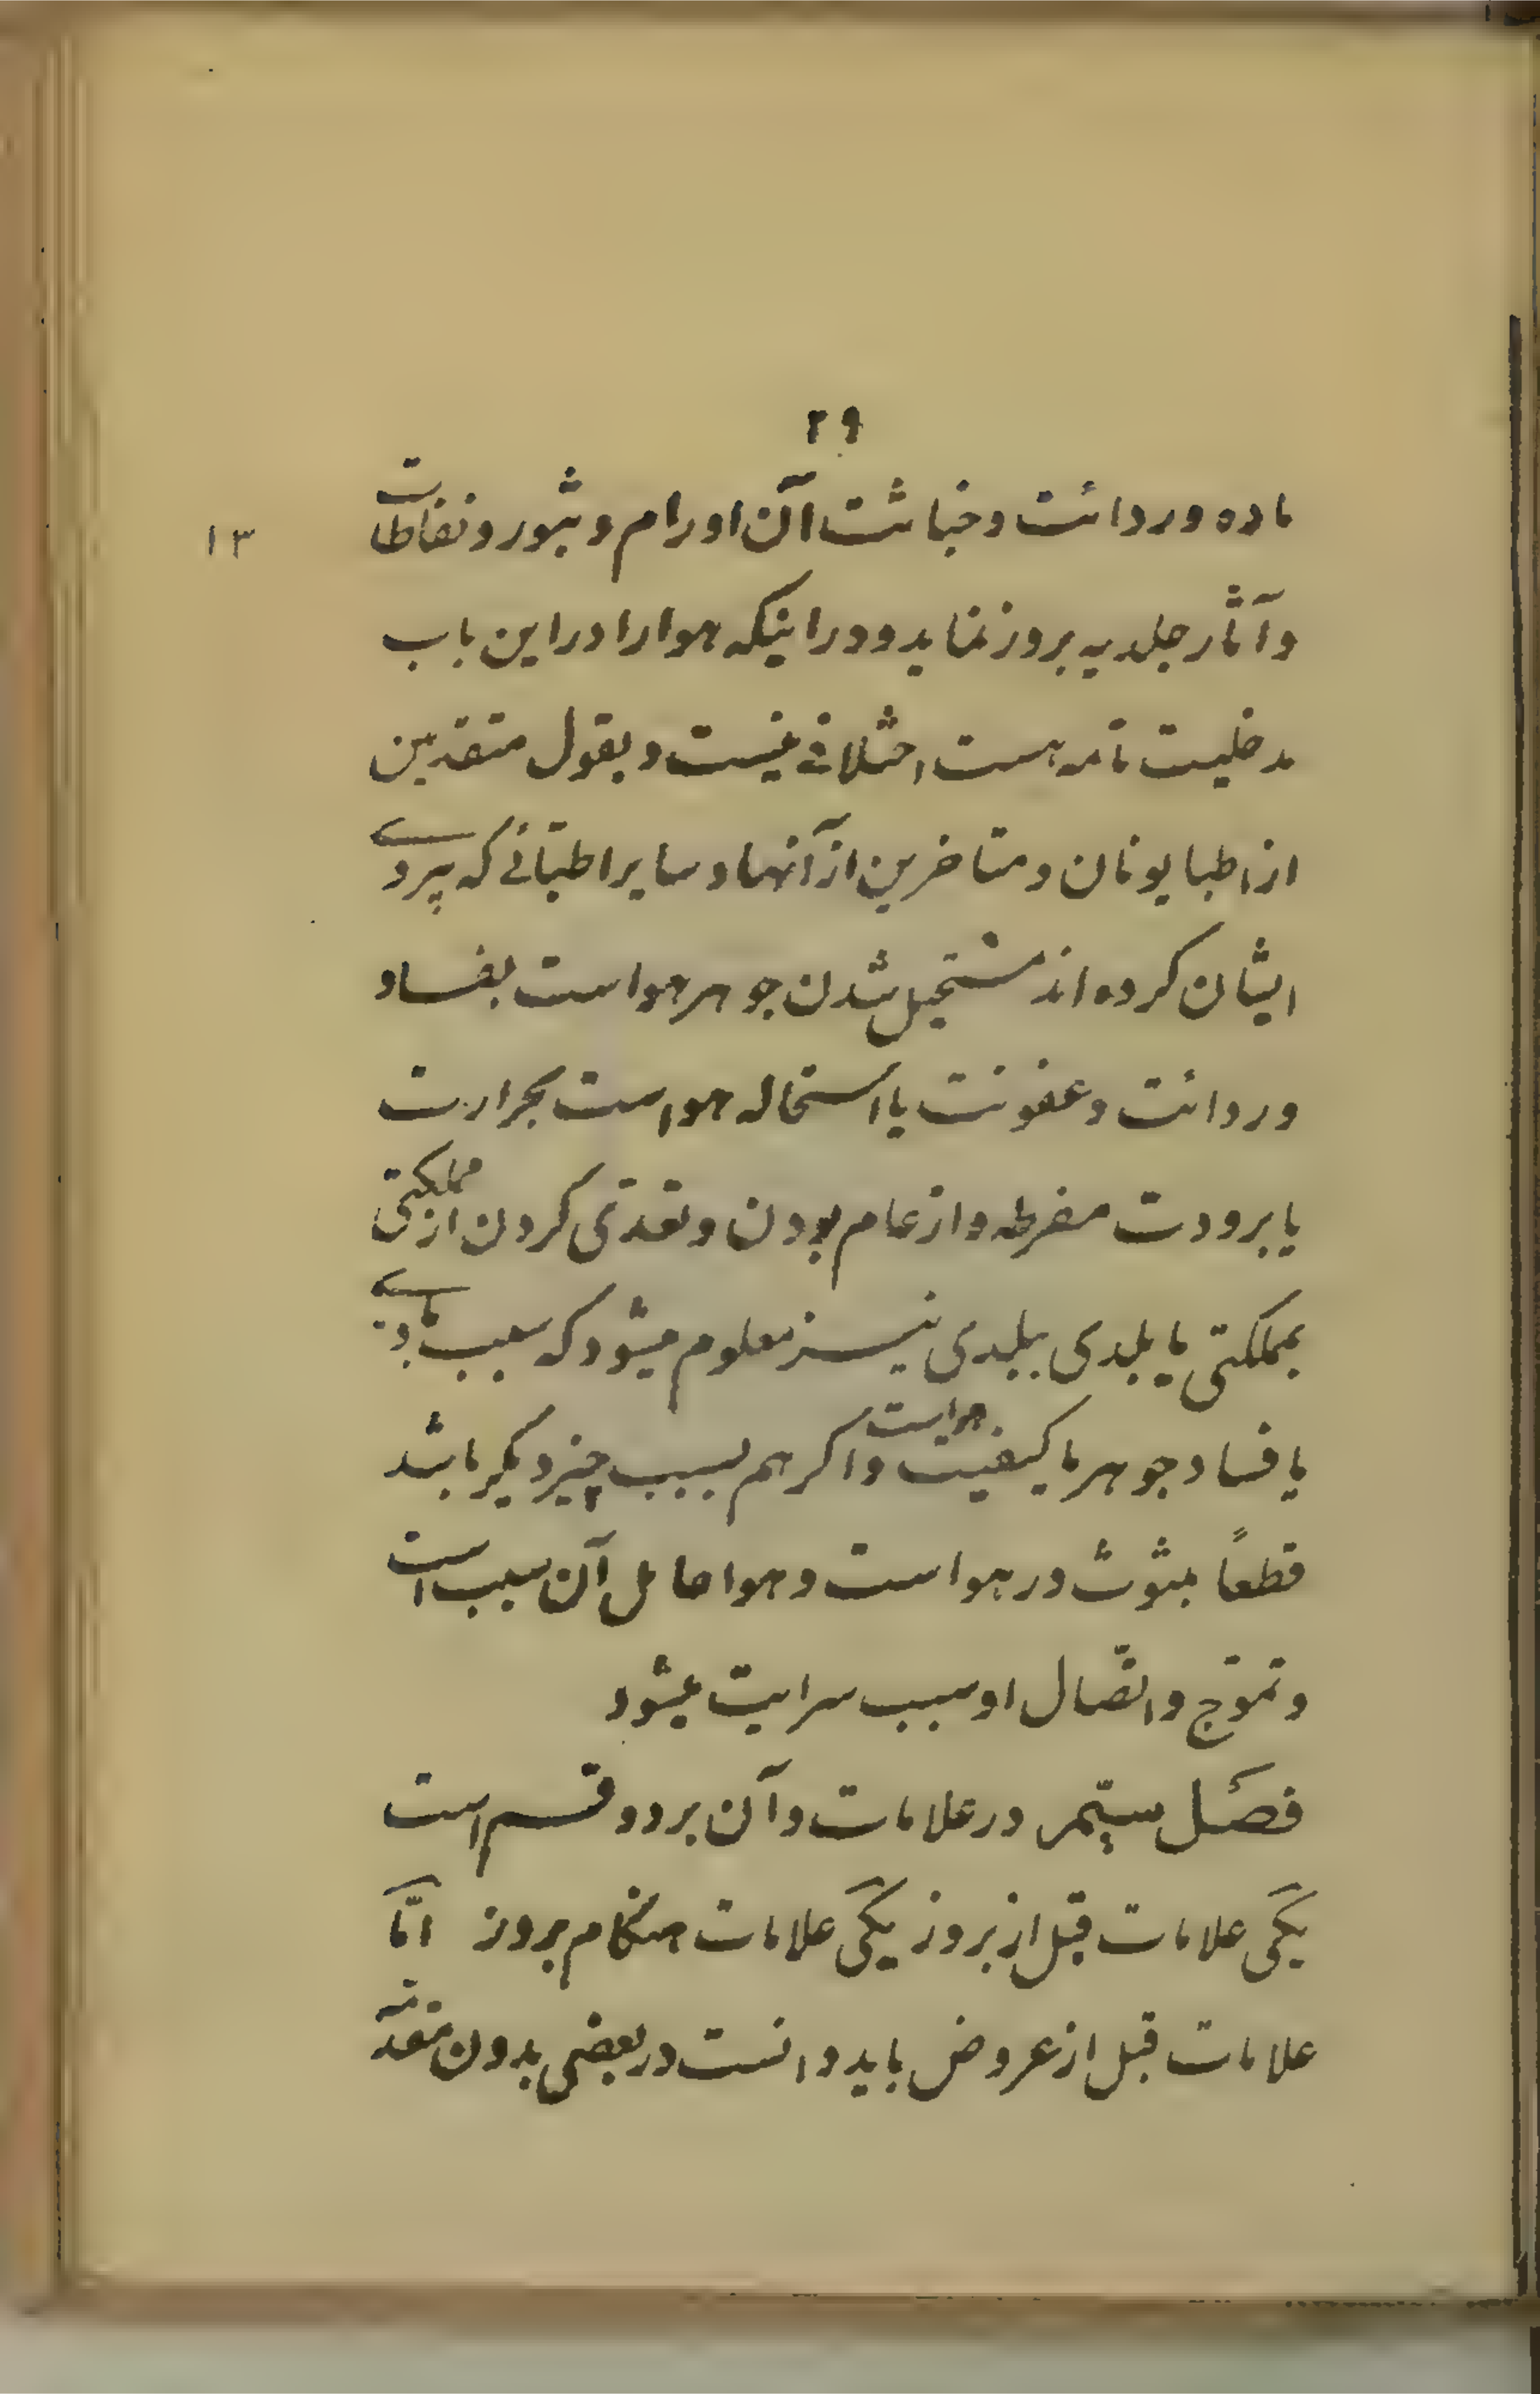 ۲۹
ماده وردائت وخباثت آن اورام و بثور و نفاطات
۱۳
وآثار جلدیه بروز نماید و در اینکه هوا را در این باب
مدخلیت تامه هست اختلافی نیست و بقول متقدمین
از اطبا یونان و متاخرین از آنها و سایر اطبّائی که پیروی
ایشان کرده اند مستحیل شدن جوهر هواست بفساد
وردائت و عفونت یا استحاله هواست بحرارت
یا برودت مفرطه و از عام بودن و تعدّی کردن از مملکتی
بمملکتی یا بلدی ببلدی نیز معلوم میشود که سبب وبا
یا فساد جوهر یا کیفیت هواست و اکر هم بسبب چیز دیکر باشد
قطعاً مبثوث در هواست و هوا حامل آن سبب است
و تموّج و اتّصال او سبب سرایت میشود
فصل سیّم در علامات و آن بر دو قسم است
یکی علامات قبل از بروز یکی علامات هنکام بروز امّا
علامات قبل از عروض باید دانست در بعضی بدون